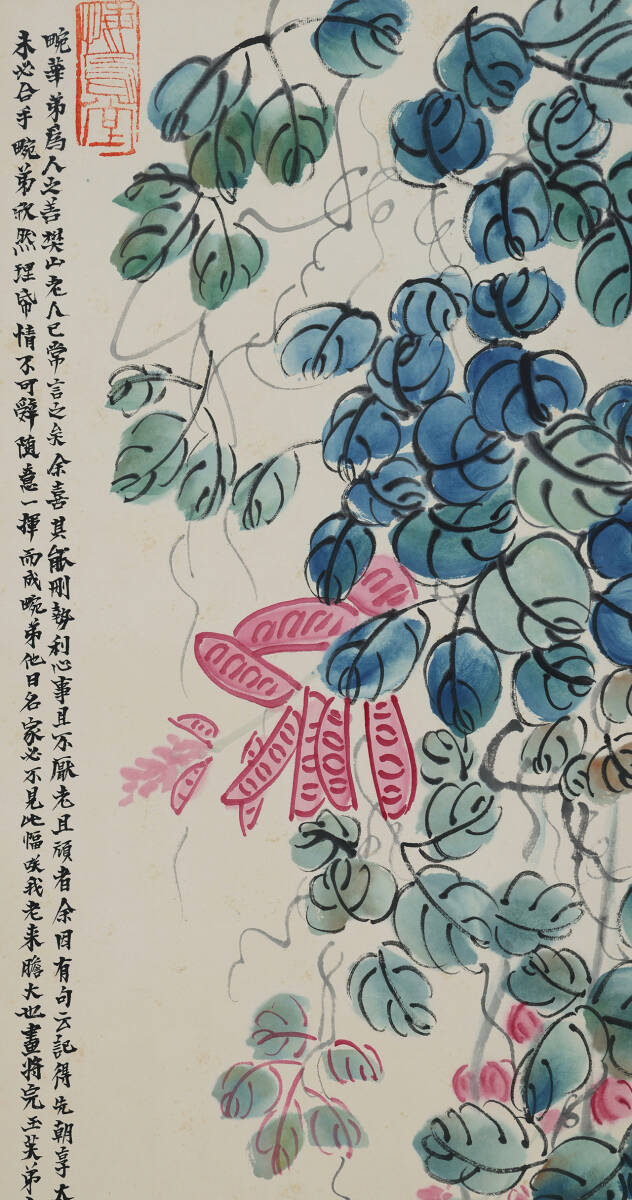 悔烏堂
畹華弟爲人之善樊山老人已常言之矣余喜其能刪勢利心事且不厭老且頑者余因有句云記得先朝享太
未必合手畹弟欣然理帋情不可辭随意一揮而成畹弟他日名家必不見此幅咲我老来膽大也畫將完玉芙弟